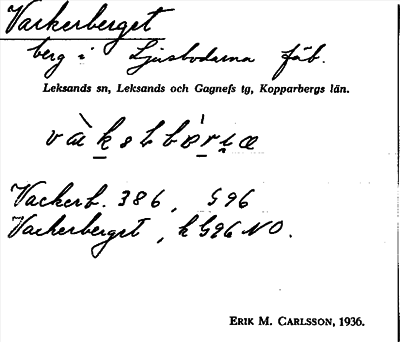 Vackerberget
berg i Ljusbodarna fäb.
Leksands sn, Leksands och Gagnefs tg, Kopparbergs län.
Vackerb. 386, G96
Vackerberget, k G96 NO.
ERIK M. CARLSSON, 1936.